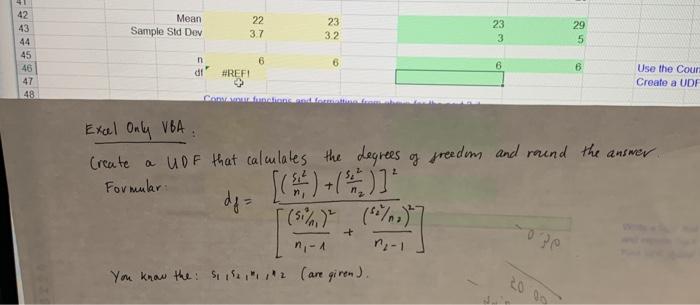 41
42
43 Mean 22 23 23 29
44 Sample Std Dev 3.7 3.2 3 5
45
46 n 6 6 6 6 Use the Coun
47 df #REF! Create a UDF
48
Copy your functions and formatting from above for the
Excel Only VBA:
Create a UDF that calculates the degrees of freedom and round the answer.
Formular: df = [(s₁²/n₁) + (s₂²/n₂)]² / [(s₁²/n₁)²/(n₁-1) + (s₂²/n₂)²/(n₂-1)]
You know the: s₁, s₂, n₁, n₂ (are given).